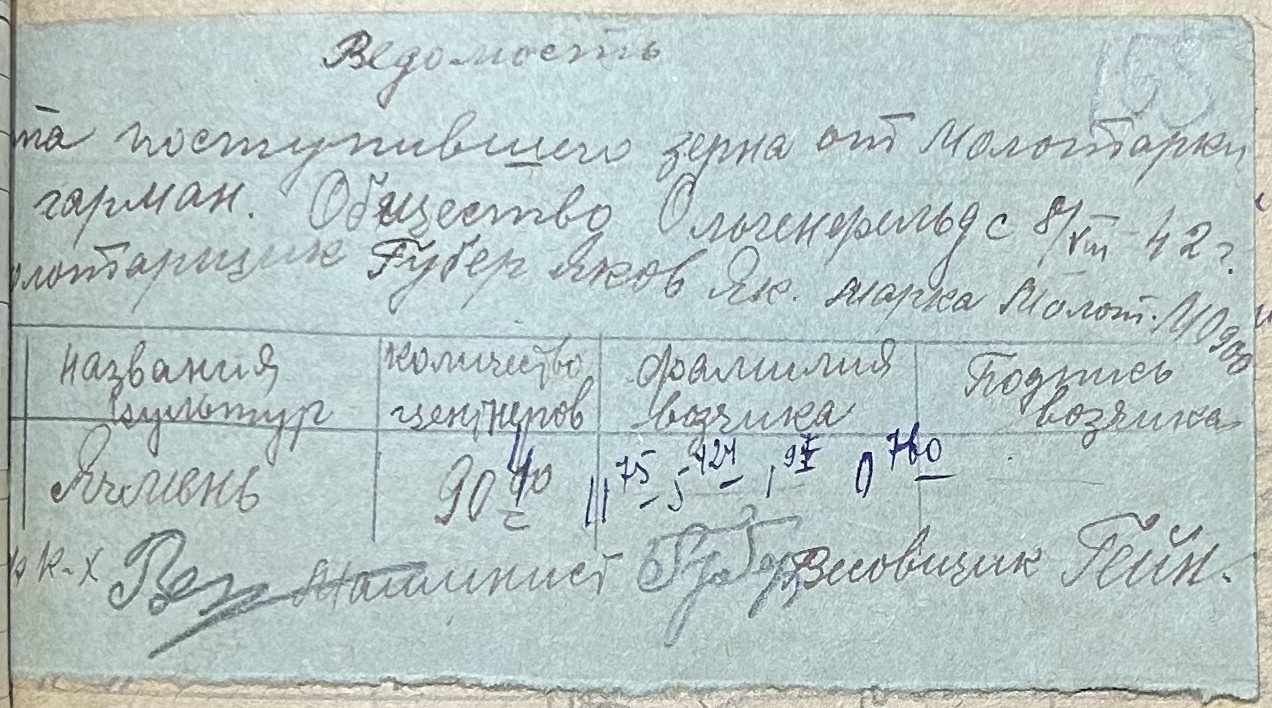 Ведомость
165
та поступившего зерна от Молотарки
гарман. Общество Ольгенфельд с 8/VIII 42 г.
олотарщик Губер Яков Як. марка Молот.
Названия культур
количество центнеров
фамилия возчика
Подпись возчика
Ячмень 90 40 ц 11 75 5 424 1 0 780
к-х Машинист Губер Весовщик Гейн.